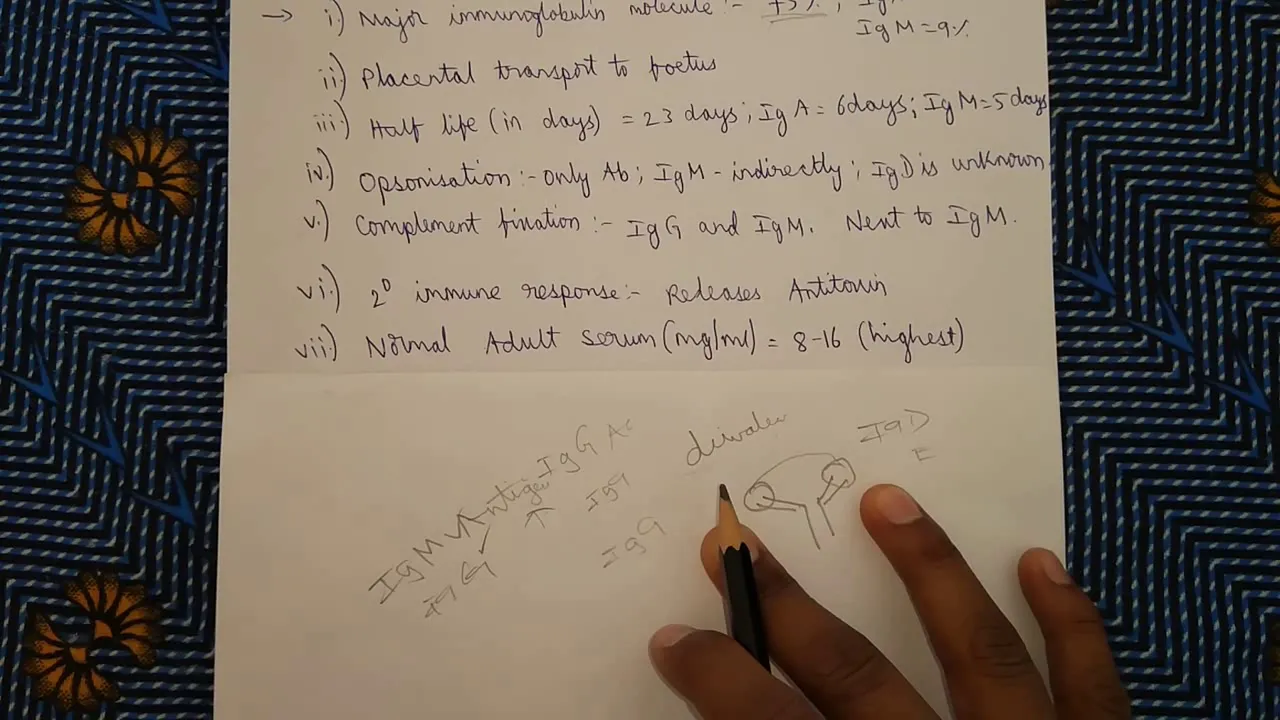 → i.) Major immunoglobulin molecule :- 75%,
IgM = 9%
ii.) Placental transport to foetus
iii.) Half life (in days) = 23 days; IgA = 6days; IgM = 5 days
iv.) Opsonisation :- only Ab; IgM - indirectly; IgD is unknown
v.) Complement fixation :- IgG and IgM. Next to IgM.
vi.) 2° immune response:- Releases Antitoxin
vii.) Normal Adult Serum (mg/ml) = 8-16 (highest)
IgG
Antigen
IgM
IgG
IgG
IgG
IgD
E